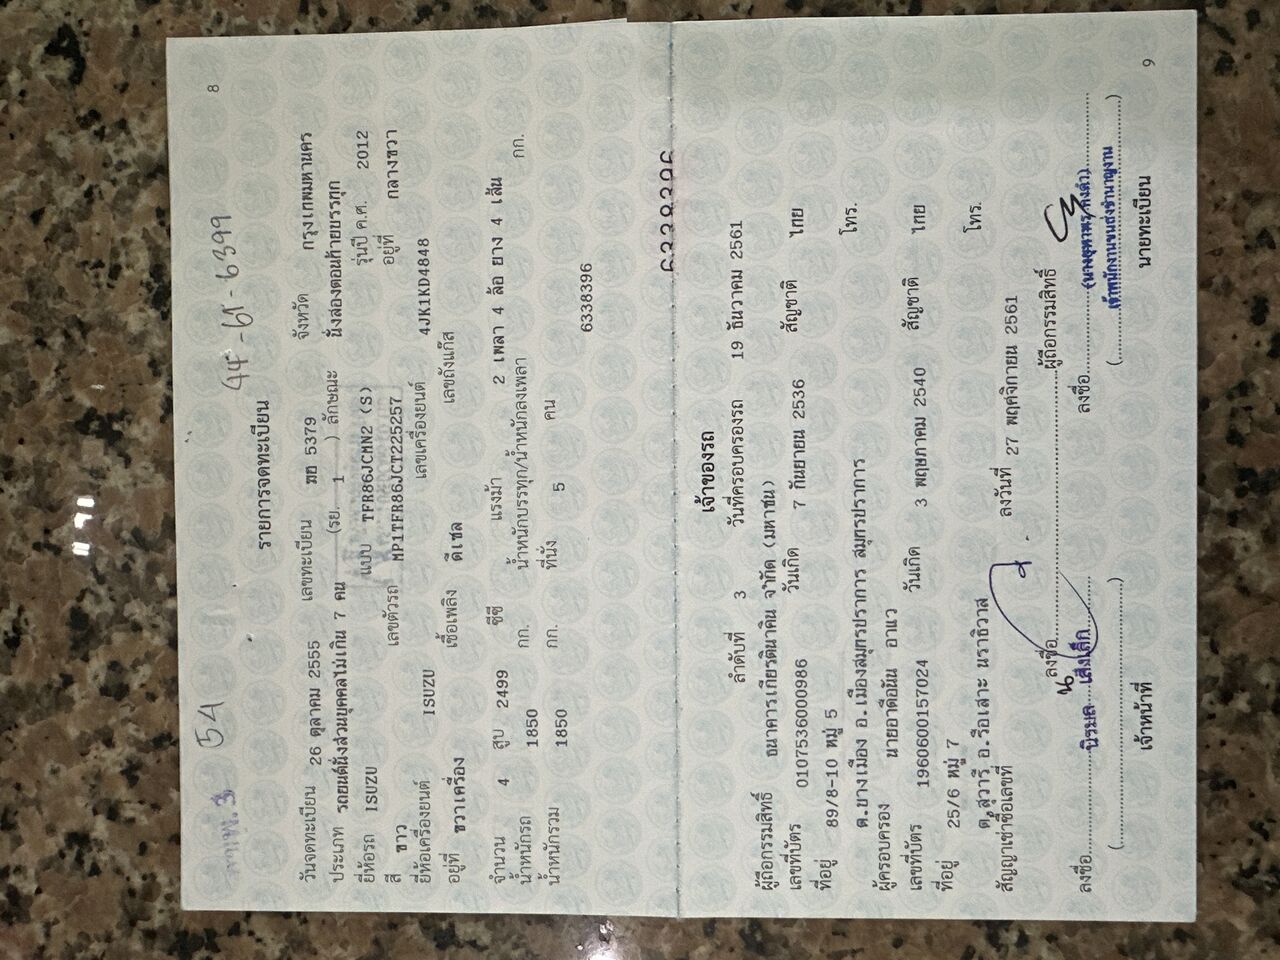 8
54
44-61-6399
รายการจดทะเบียน
วันจดทะเบียน 26 ตุลาคม 2555 เลขทะเบียน ฒฮ 5379 จังหวัด กรุงเทพมหานคร
ประเภท รถยนต์นั่งส่วนบุคคลไม่เกิน 7 คน (รย. 1 ) ลักษณะ นั่งสองตอนท้ายบรรทุก
ยี่ห้อรถ ISUZU แบบ TFR86JCMN2 (S) รุ่นปี ค.ศ. 2012
สี ขาว เลขตัวรถ MP1TFR86JCT225257 อยู่ที่ กลางขวา
ยี่ห้อเครื่องยนต์ ISUZU เลขเครื่องยนต์ 4JK1KD4848
อยู่ที่ ขวาเครื่อง เชื้อเพลิง ดีเซล เลขถังแก๊ส
จำนวน 4 สูบ 2499 ซีซี แรงม้า 2 เพลา 4 ล้อ ยาง 4 เส้น
น้ำหนักรถ 1850 กก. น้ำหนักบรรทุก/น้ำหนักลงเพลา กก.
น้ำหนักรวม 1850 กก. ที่นั่ง 5 คน
6338396
6338396
เจ้าของรถ
ลำดับที่ 3 วันที่ครอบครองรถ 19 ธันวาคม 2561
ผู้ถือกรรมสิทธิ์ ธนาคารเกียรตินาคิน จำกัด (มหาชน)
เลขที่บัตร 0107536000986 วันเกิด 7 กันยายน 2536 สัญชาติ ไทย
ที่อยู่ 89/8-10 หมู่ 5
ต.บางเมือง อ.เมืองสมุทรปราการ สมุทรปราการ โทร.
ผู้ครอบครอง นายอาดือนัน อาแว
เลขที่บัตร 1960600157024 วันเกิด 3 พฤษภาคม 2540 สัญชาติ ไทย
ที่อยู่ 25/6 หมู่ 7
ต.สุวารี อ.รือเสาะ นราธิวาส โทร.
สัญญาเช่าซื้อเลขที่ ลงวันที่ 27 พฤศจิกายน 2561
ลงชื่อ ผู้ถือกรรมสิทธิ์
ลงชื่อ นิรมล เส้งเล็ก ลงชื่อ
(....................) (เจ้าพนักงานขนส่งชำนาญงาน)
เจ้าหน้าที่ นายทะเบียน
9